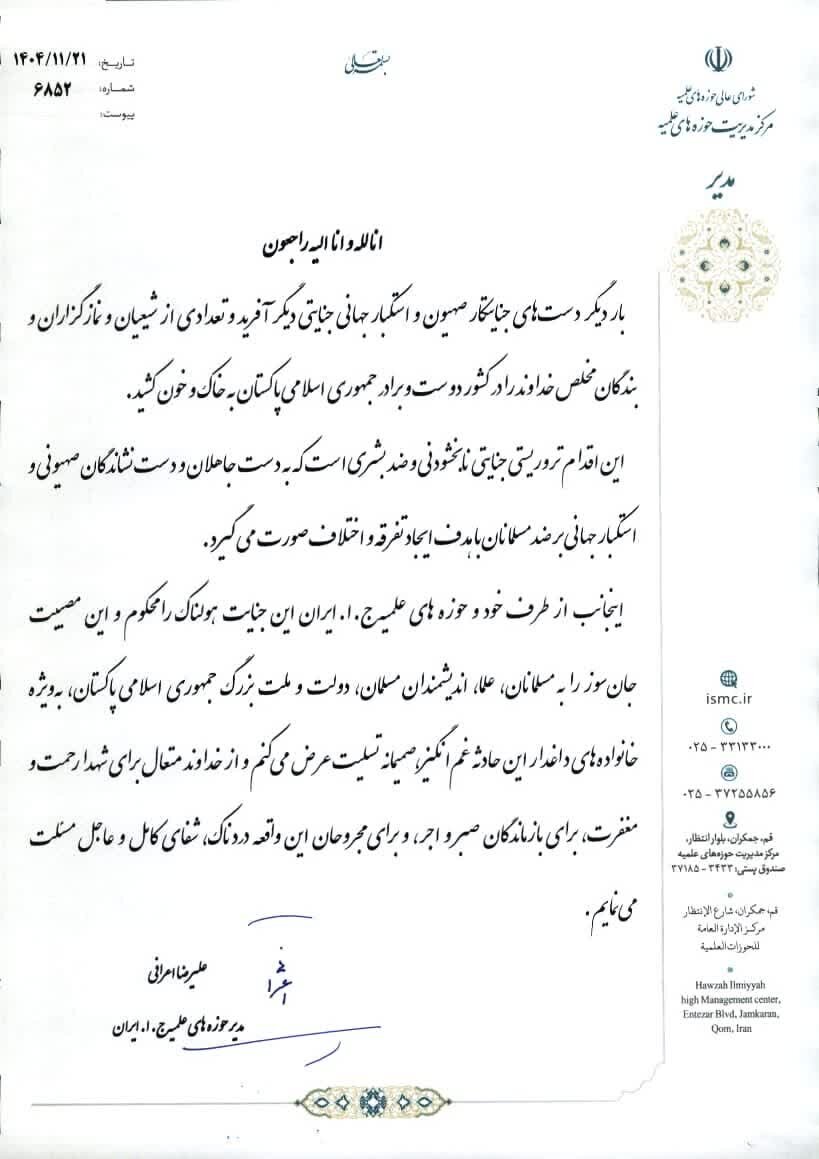 بسمه‌تعالی
شورای عالی حوزه های علمیه
مرکز مدیریت حوزه های علمیه
مدیر
تاریخ: ۱۴۰۴/۱۱/۲۱
شماره: ۶۸۵۲
پیوست:
انا لله و انا الیه راجعون
بار دیگر دست‌های جنایتکار صهیون و استکبار جهانی جنایتی دیگر آفرید و تعدادی از شیعیان و نمازگزاران و
بندگان مخلص خداوند را در کشور دوست و برادر جمهوری اسلامی پاکستان به خاک و خون کشید.
این اقدام تروریستی جنایتی نابخشودنی و ضد بشری است که به دست جاهلان و دست نشاندگان صهیونی و
استکبار جهانی بر ضد مسلمانان با هدف ایجاد تفرقه و اختلاف صورت می گیرد.
اینجانب از طرف خود و حوزه های علمیه ج.ا. ایران این جنایت هولناک را محکوم و این مصیبت
جان سوز را به مسلمانان، علما، اندیشمندان مسلمان، دولت و ملت بزرگ جمهوری اسلامی پاکستان، به‌ویژه
خانواده های داغدار این حادثه غم انگیز، صمیمانه تسلیت عرض می کنم و از خداوند متعال برای شهدا رحمت و
مغفرت، برای بازماندگان صبر و اجر، و برای مجروحان این واقعه دردناک، شفای کامل و عاجل مسئلت
می نمایم.
علیرضا اعرافی
مدیر حوزه های علمیه ج.ا. ایران
ismc.ir
۰۲۵ - ۳۳۱۳۳۰۰۰
۰۲۵ - ۳۷۲۵۵۸۵۶
قم، جمکران، بلوار انتظار،
مرکز مدیریت حوزه‌های علمیه
صندوق پستی: ۳۴۳۳ - ۳۷۱۸۵
قم، جمکران، شارع الإنتظار
مرکز الإدارة العامة
للحوزات العلمية
Hawzah Ilmiyyah
high Management center,
Entezar Blvd, Jamkaran,
Qom, Iran